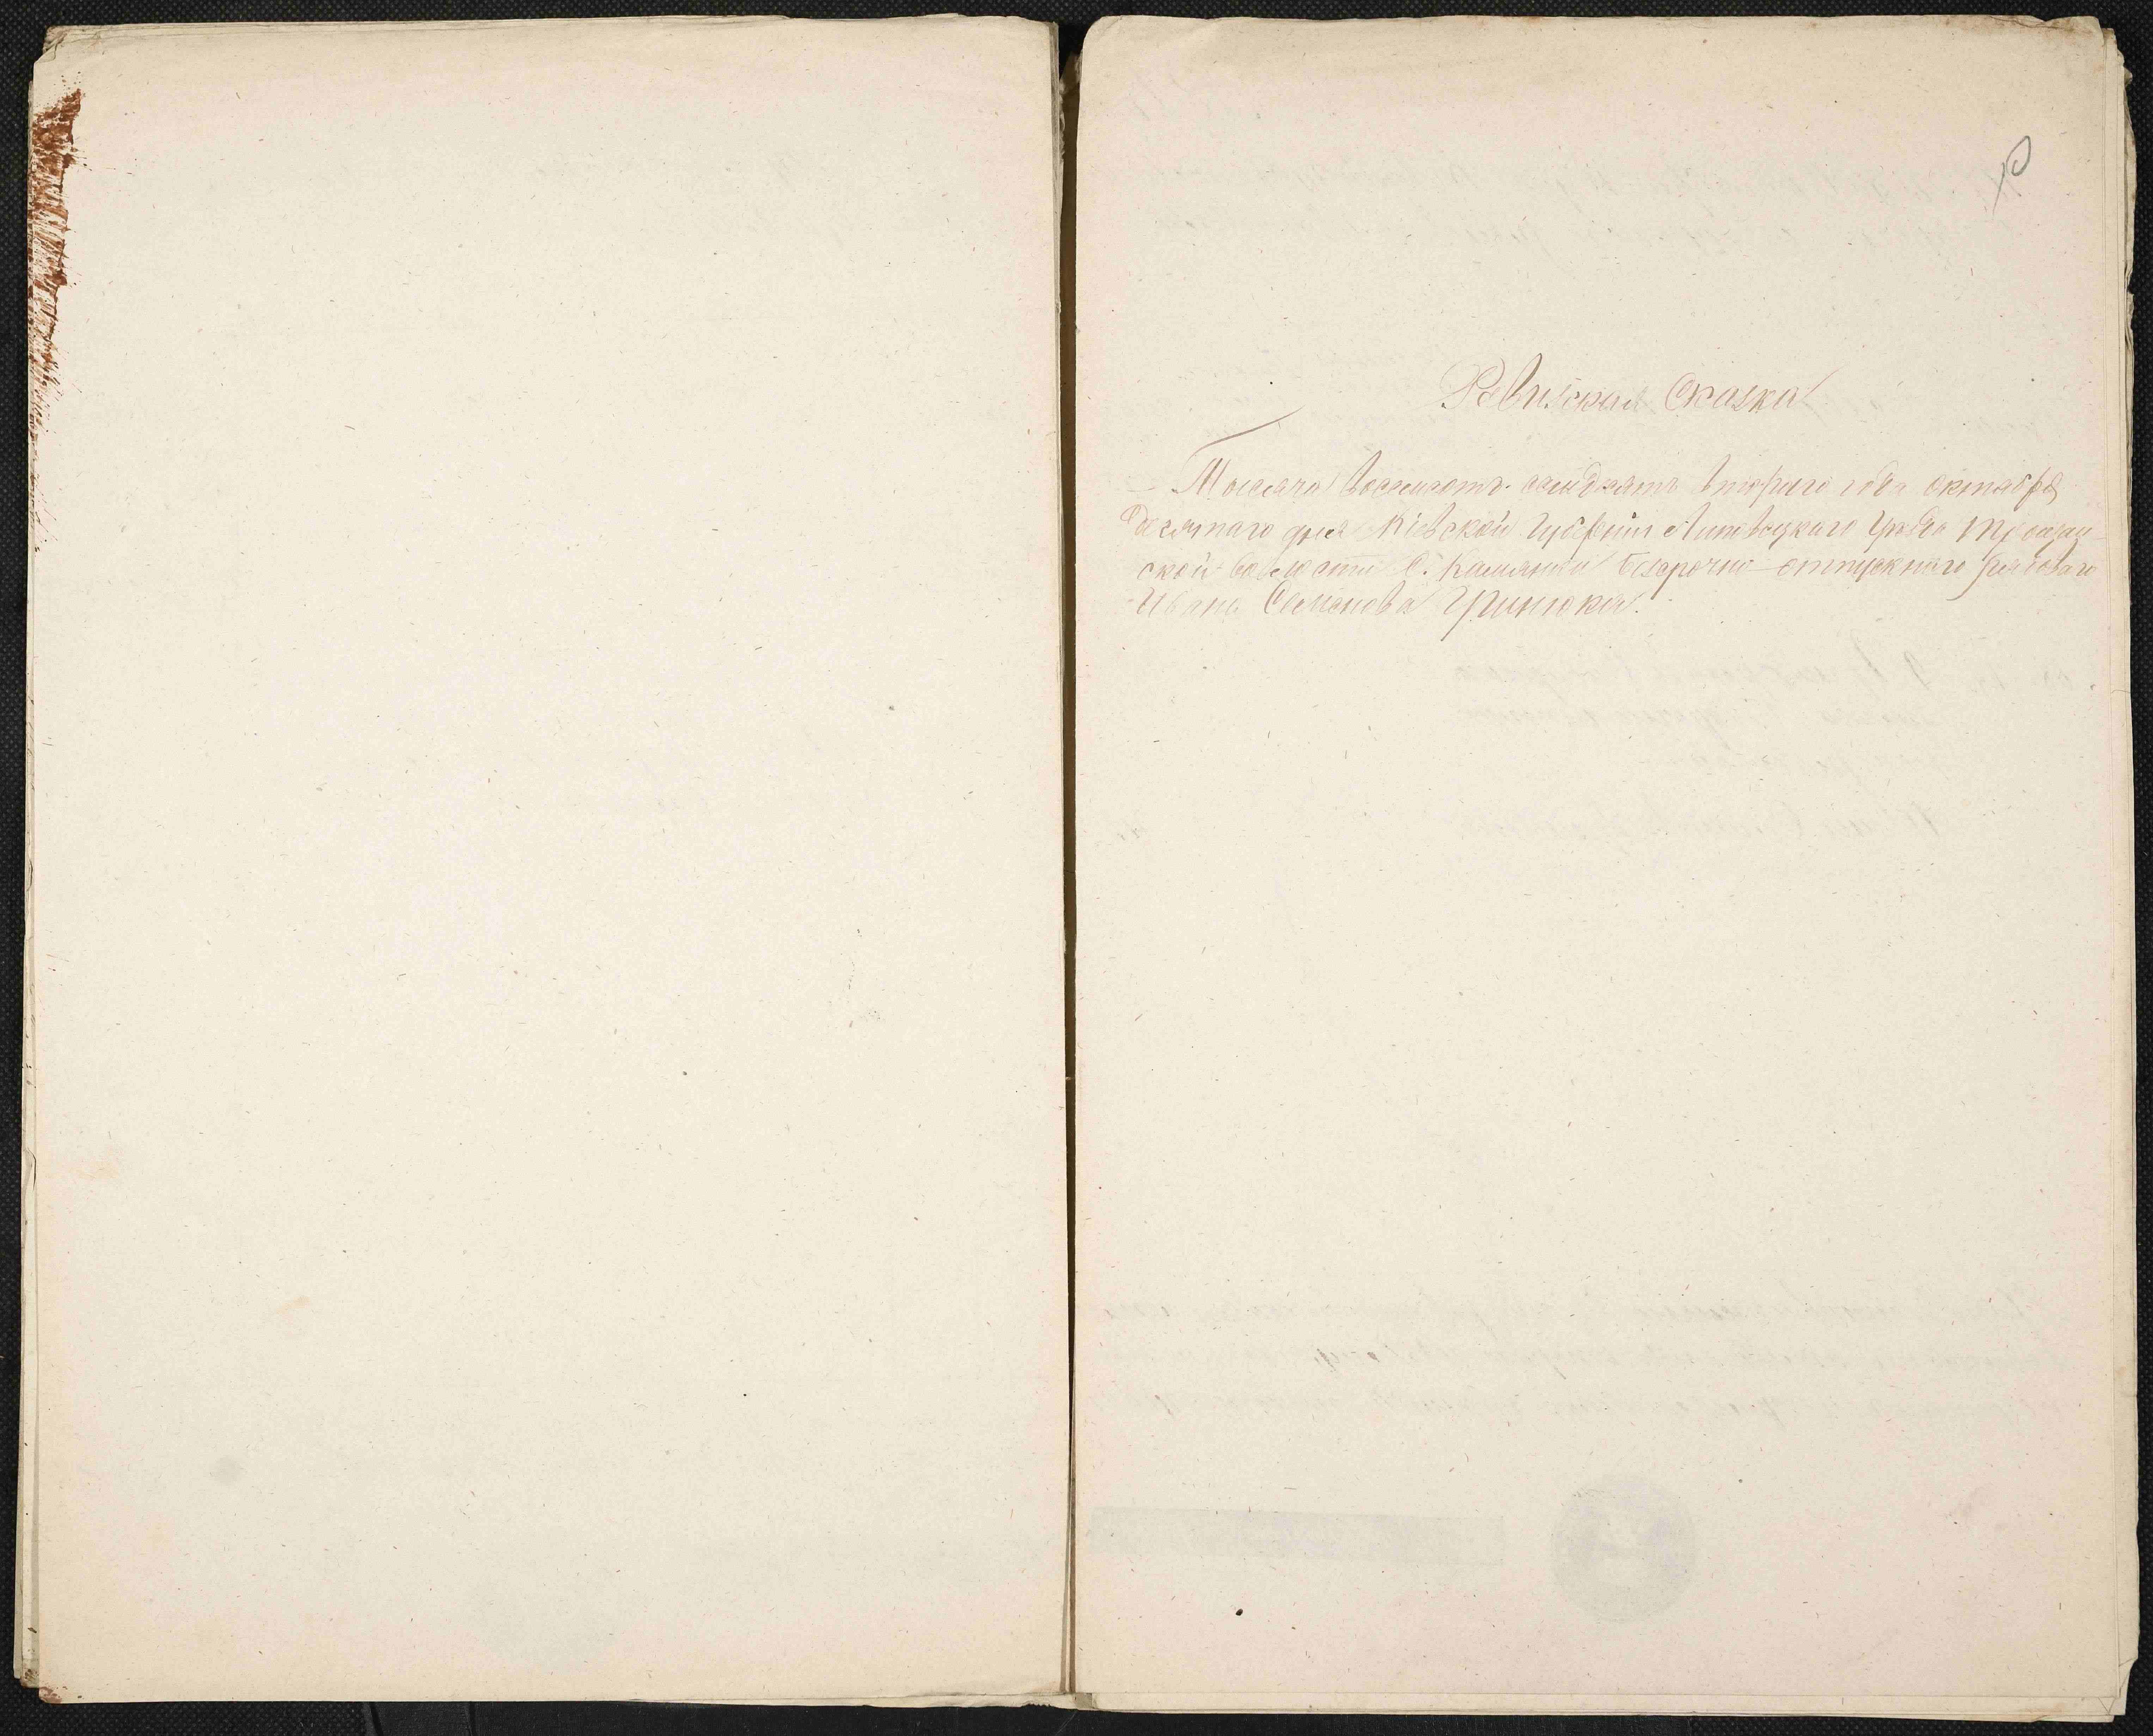 Ревизская Сказка
Тысяча восемьсотъ семдесятъ втораго года октября
десятаго дня Кіевской Губерніи Липовецкаго Уѣзда
ской волости С. Каменной безсрочно-отпускнаго рядоваго
Ивана Семенова Гринюка.